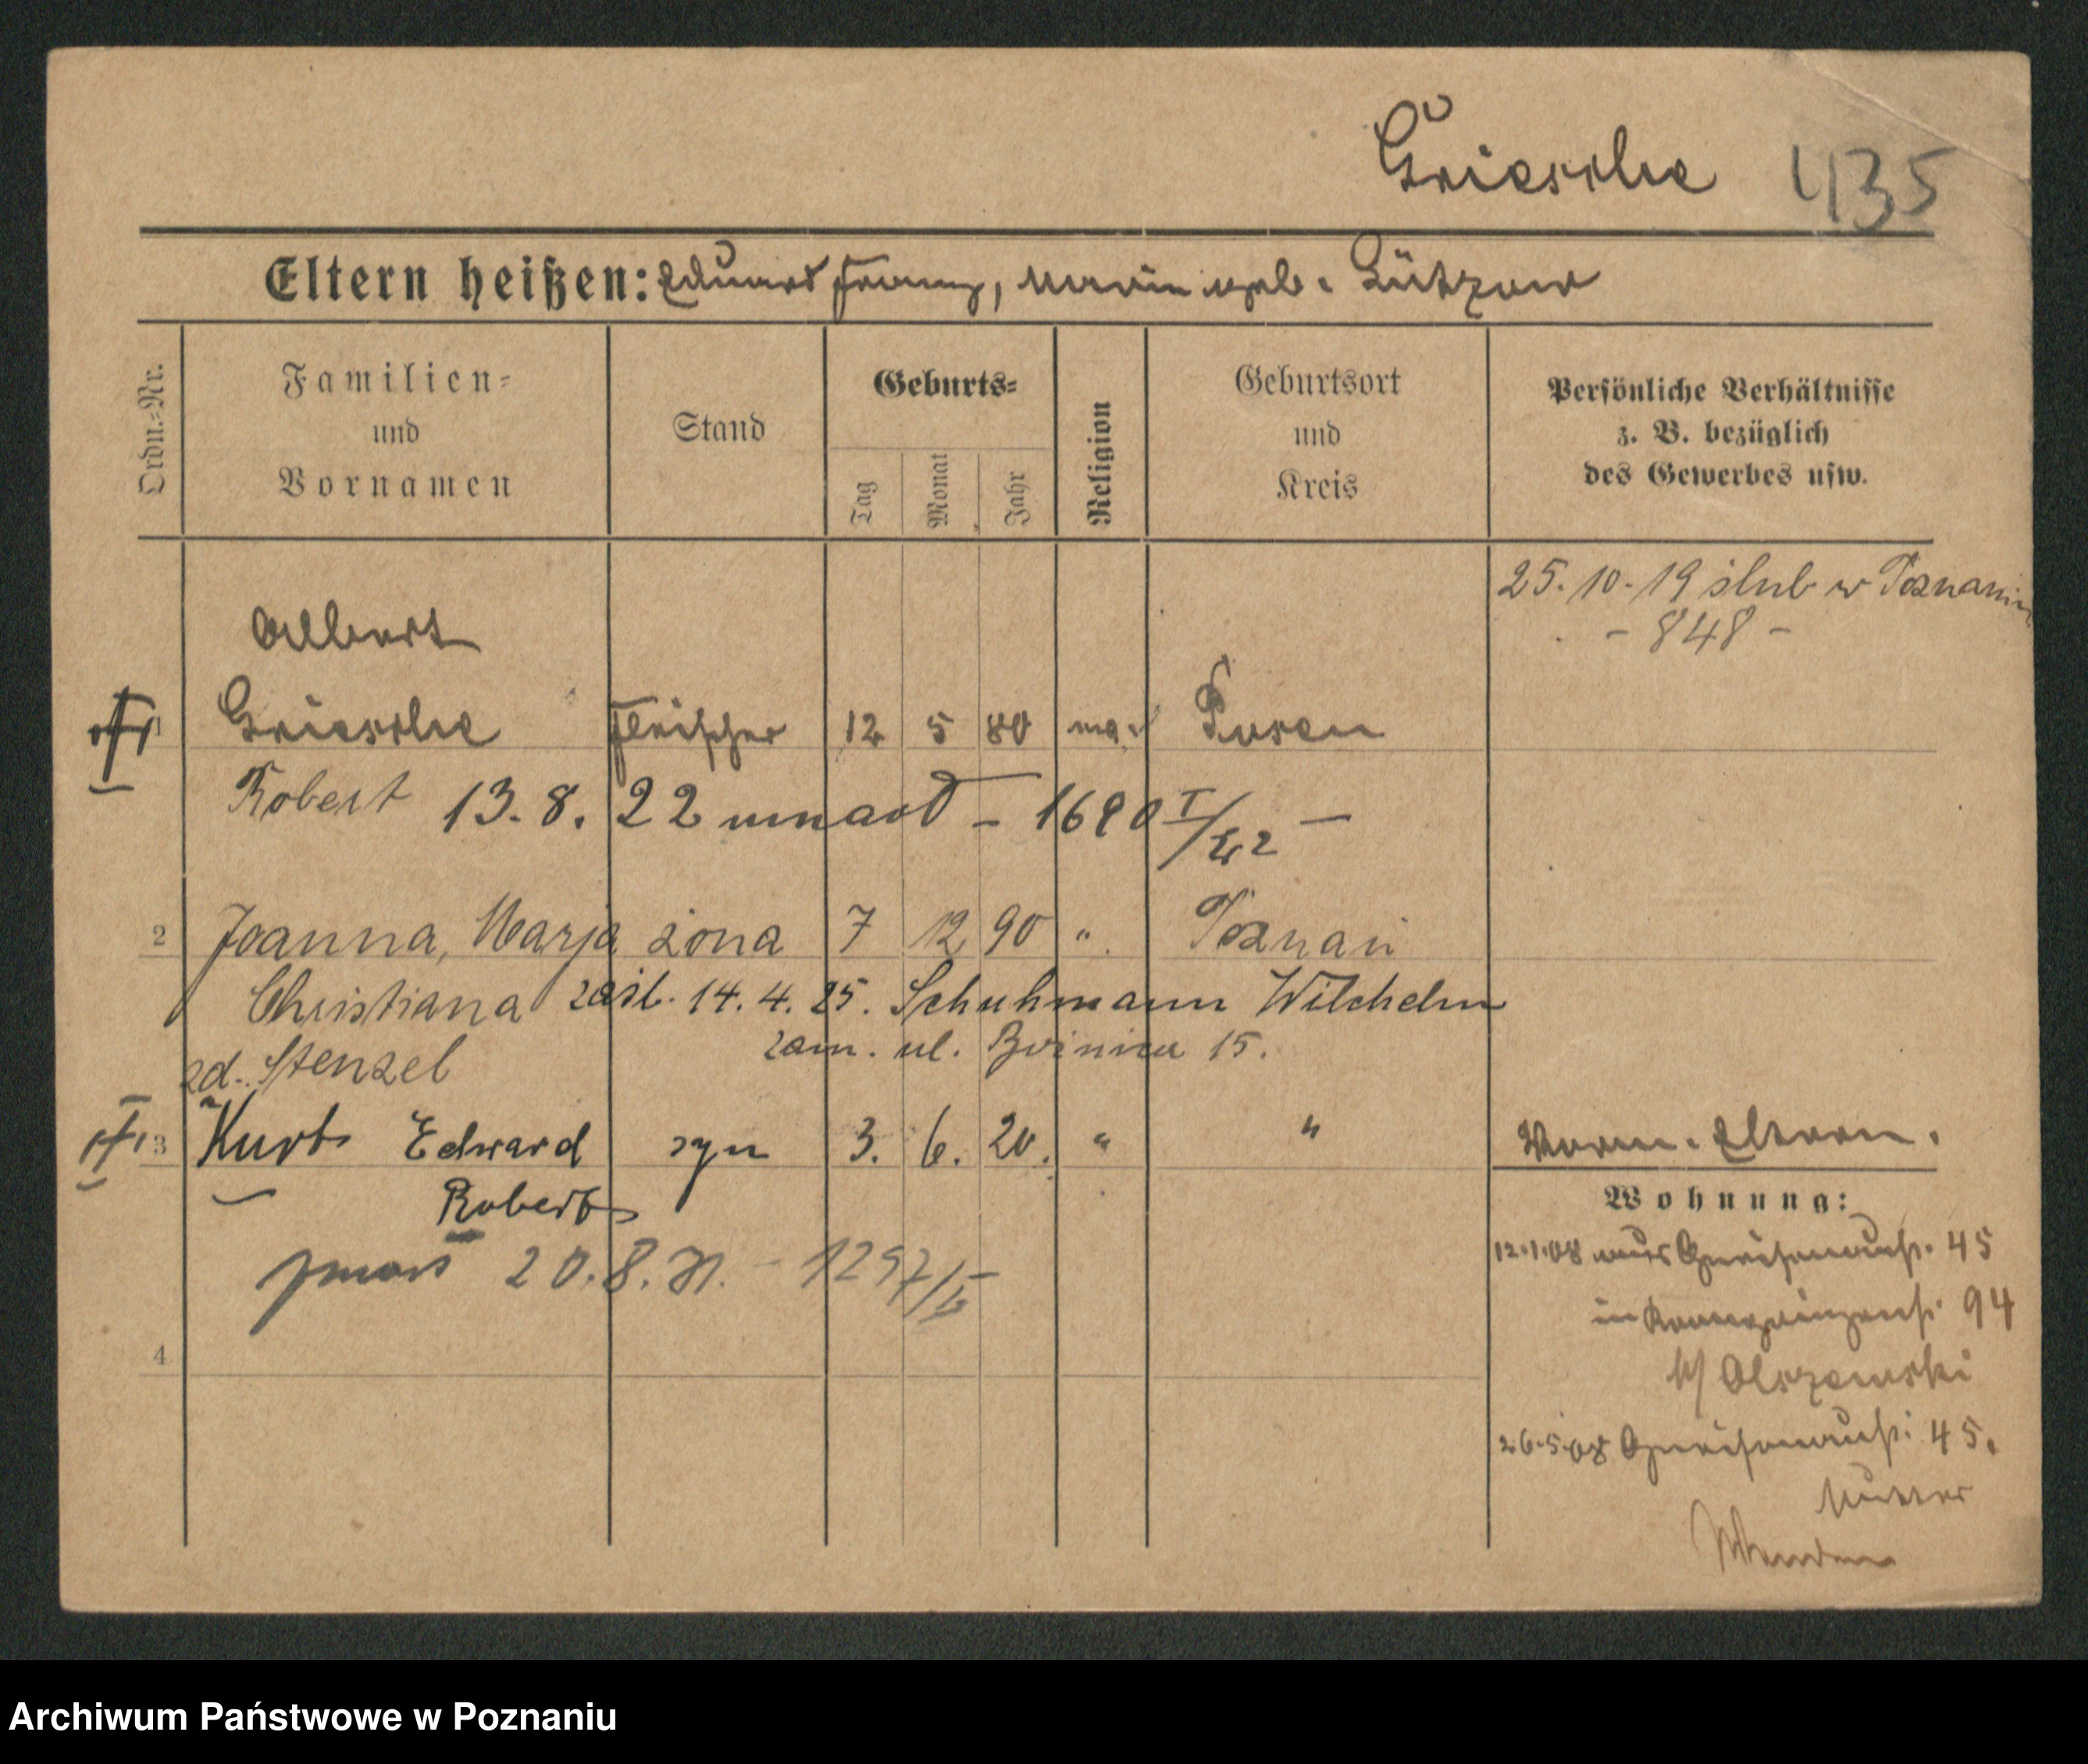 Grieschke 435
Eltern heißen: Eduard Franz, Maria geb. Lützow
Ordn.=Nr.
Familien=
und
Vornamen
Stand
Geburts=
Tag
Monat
Jahr
Religion
Geburtsort
und
Kreis
Persönliche Verhältnisse
z. B. bezüglich
des Gewerbes usw.
25. 10. 19 ślub w Poznaniu
- 848 -
Albert
1 Fleischer 12 5 80 Posen
Robert 13. 8. 22 umarł - 1690
2 Joanna, Marja żona 7 12 90 " Poznań
Christiana zaśl. 14. 4. 25. Schuhmann Wilchelm
zam. ul. 15.
zd. Stenzel
3 Kurt Edward syn 3. 6. 20. " "
Eltern.
Robert
Wohnung:
zmarł 20. 8.
12.1.08 aus Gneisenaustr. 45
in 94
b/ Olszewski
4
26.5.08 Gneisenaustr. 45.
Mutter
Archiwum Państwowe w Poznaniu